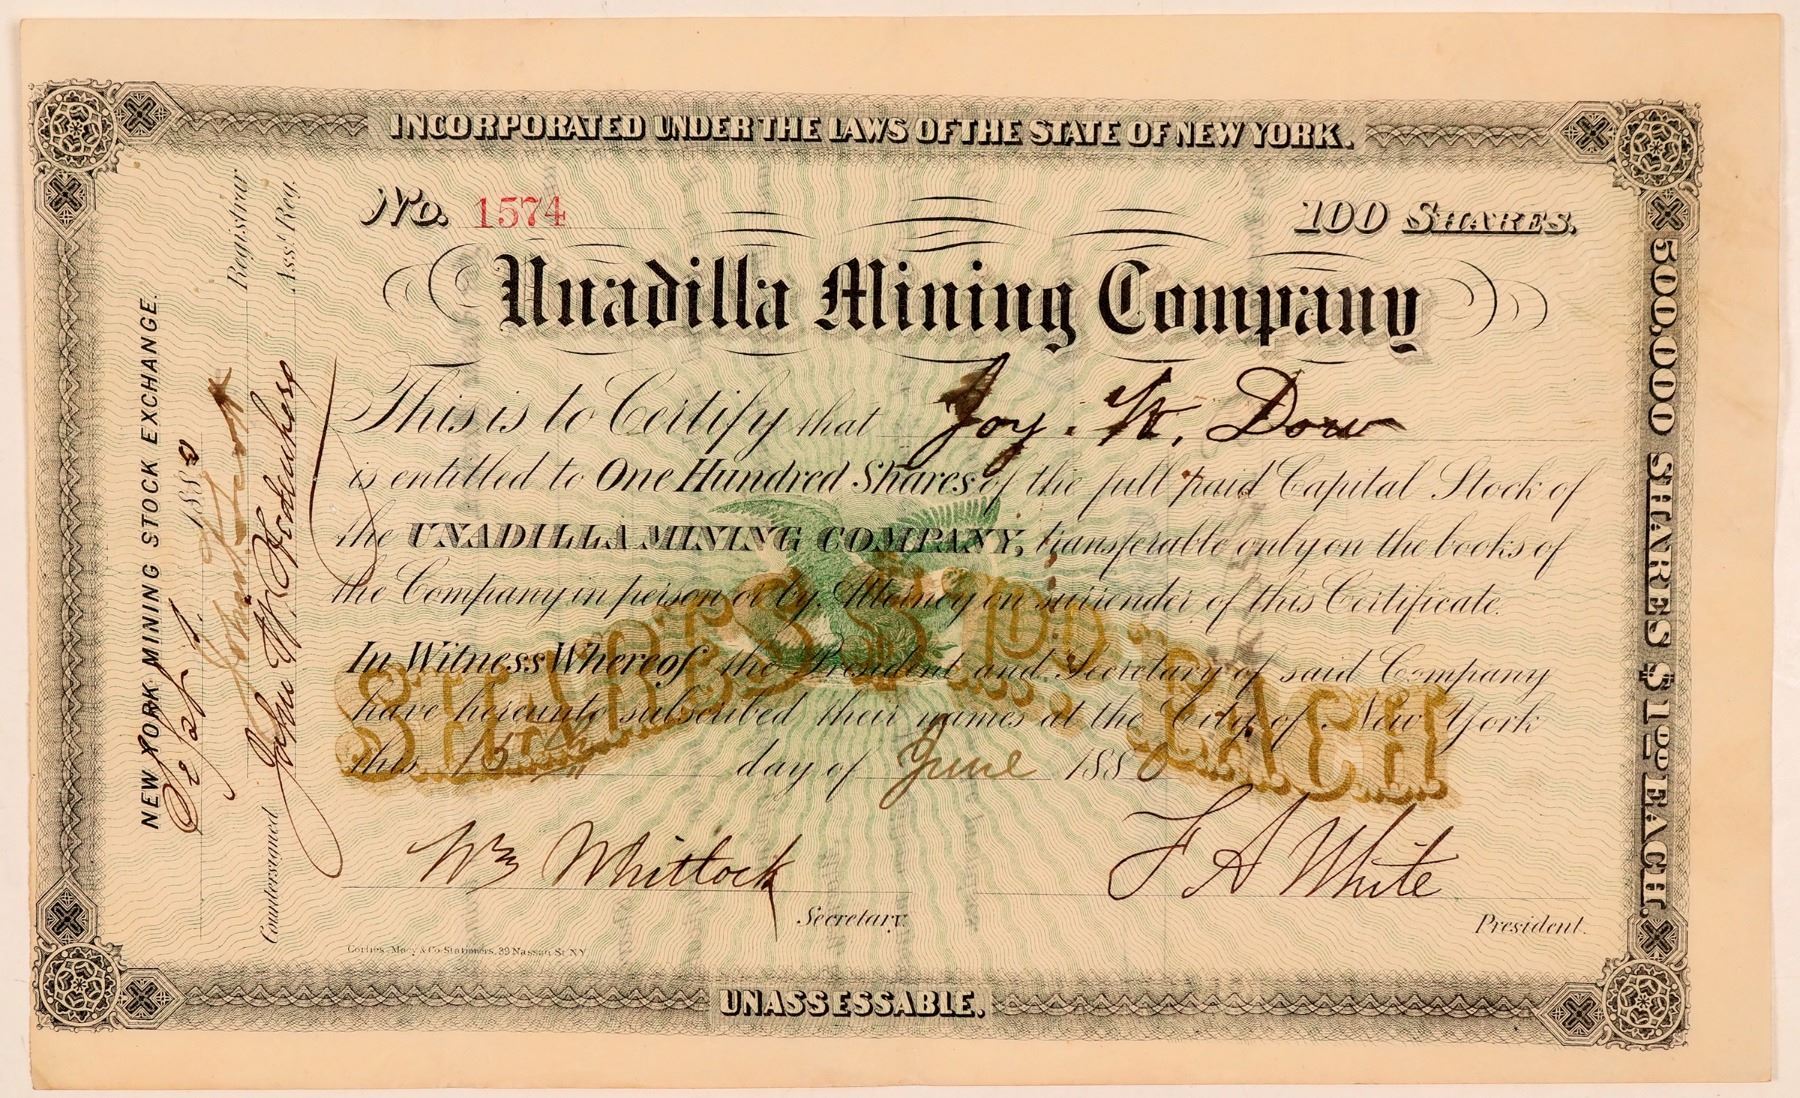 INCORPORATED UNDER THE LAWS OF THE STATE OF NEW YORK.
No. 1574
100 SHARES.
Unadilla Mining Company
This is to Certify that Joy. W. Dow
is entitled to One Hundred Shares of the full paid Capital Stock of
the UNADILLA MINING COMPANY, transferable only on the books of
the Company in person or by Attorney on surrender of this Certificate.
In Witness Whereof the President and Secretary of said Company
have hereunto subscribed their names at the City of New York
this 15th day of June 1880
SHARES $100 EACH
Wm Whittock
Secretary.
F A White
President.
Corlies, Macy & Co. Stationers, 39 Nassau St. N.Y.
UNASSESSABLE.
500,000 SHARES $100 EACH.
NEW YORK MINING STOCK EXCHANGE.
Sept 1. 1880
Registrar
Countersigned John W.
Asst. Reg.